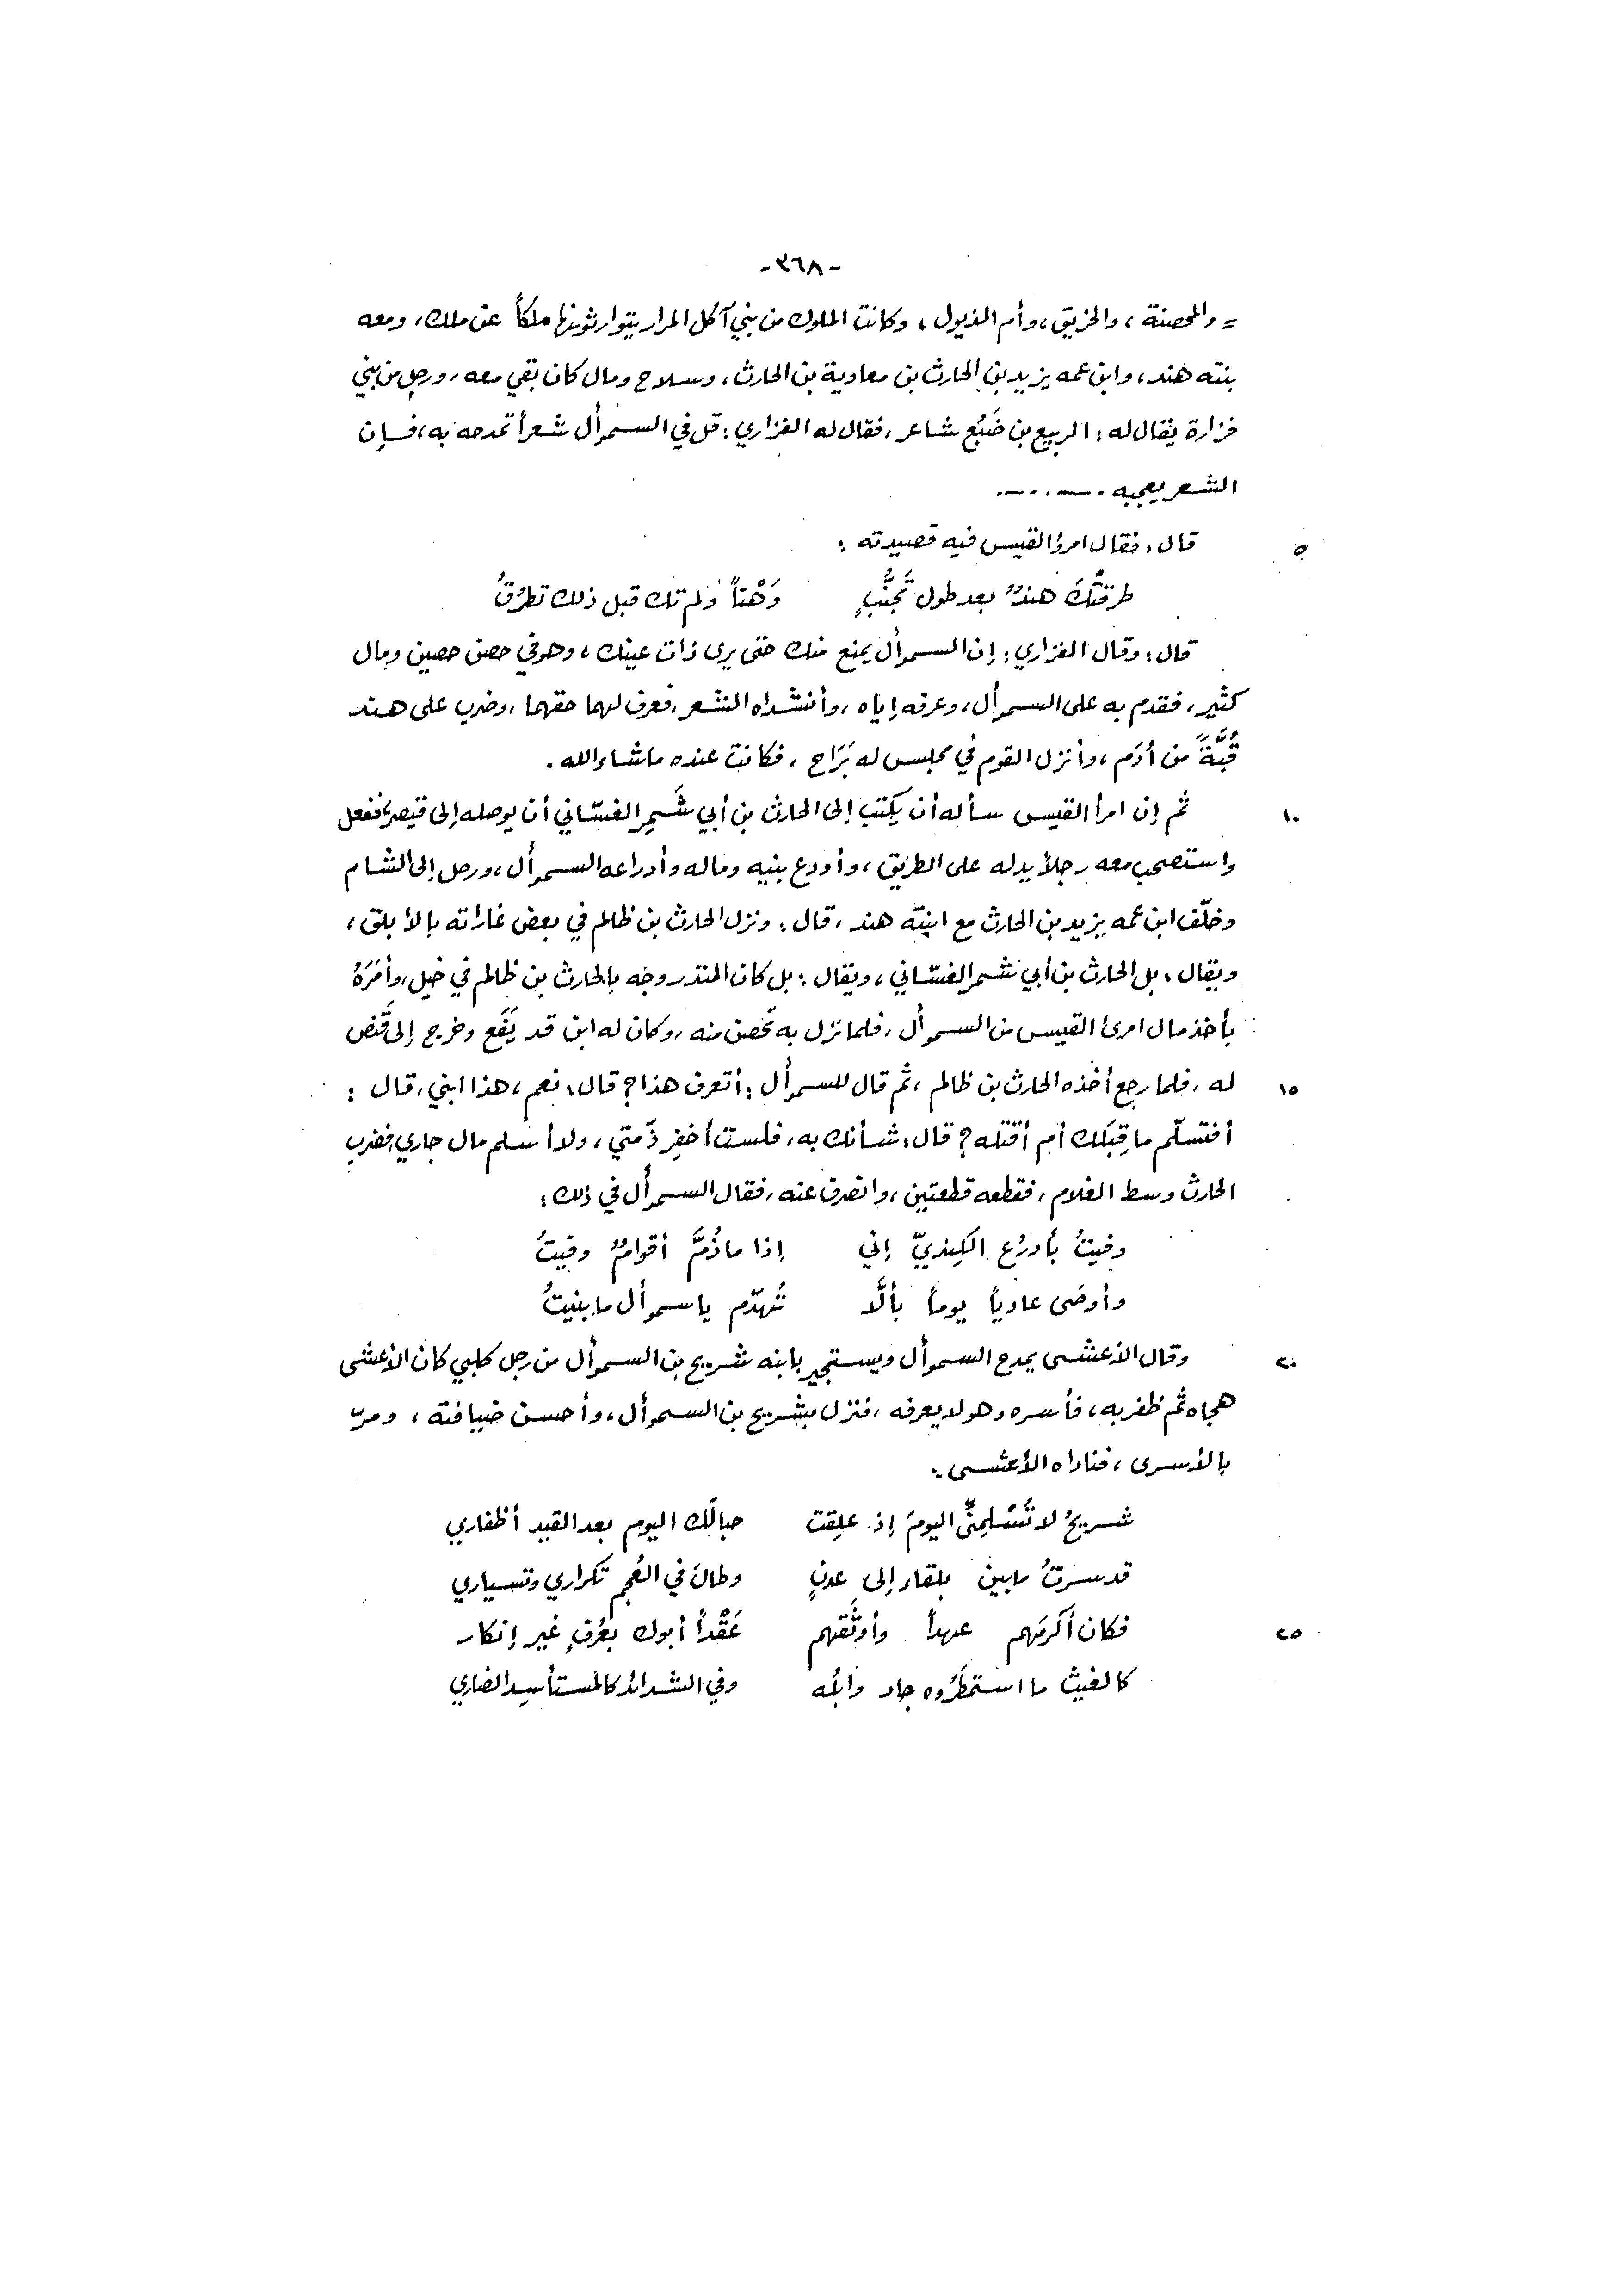 -٣٦٨-
= والمحصنة ، والخريق ، وأم الذيول ، وكانت الملوك من بني آكل المرار يتوارثونها ملكاً عن ملك ، ومعه
بنته هند ، وابن عمه يزيد بن الحارث بن معاوية بن الحارث ، وسلاح ومال كان بقي معه ، ورجل من بني
فزارة يقال له : الربيع بن ضَبُع شاعر ، فقال له الفزاري : قل في السموأل شعراً تمدحه به ، فإن
الشعر يعجبه .......
٥ قال : فقال امرؤ القيس فيه قصيدته :
طرقتْكَ هندٌ بعد طول تَجَنُّبٍ وَهْناً ولم تك قبل ذلك تطرُقُ
قال : وقال الفزاري : إن السموأل يمنع منك حتى يرى ذات عينك ، وهو في حصن حصين ومال
كثير ، فقدم به على السموأل ، وعرفه إياه ، وأنشداه الشعر ، فعرف لهما حقهما ، وضرب على هند
قُبَّةً من أدَم ، وأنزل القوم في مجلس له بَرَاح ، فكانت عنده ما شاء الله .
١٠ ثم إن امرأ القيس سأله أن يكتب إلى الحارث بن أبي شَمِر الغسّاني أن يوصله إلى قيصر ، ففعل
واستصحب معه رجلاً يدله على الطريق ، وأودع بنيه وماله وأدراعه السموأل ، ورحل إلى الشام
وخلّف ابن عمه يزيد بن الحارث مع ابنته هند ، قال : ونزل الحارث بن ظالم في بعض غاراته بالأبلق ،
ويقال : بل الحارث بن أبي شمر الغسّاني ، ويقال : بل كان المنذر وجه بالحارث بن ظالم في خيل ، وأمَرَهُ
بأخذ مال امرئ القيس من السموأل ، فلما نزل به تحصن منه ، وكان له ابن قد يَفَع وخرج إلى قَنص
١٥ له ، فلما رجع أخذه الحارث بن ظالم ، ثم قال للسموأل : أتعرف هذا ؟ قال : نعم ، هذا ابني ، قال :
أفتسلّم ما قِبَلك أم أقتله ؟ قال : شأنك به ، فلست أخفِر ذمّتي ، ولا أسلم مال جاري ، فضرب
الحارث وسط الغلام ، فقطعه قطعتين ، وانصرف عنه ، فقال السموأل في ذلك :
وفيتُ بأدرُع الكِنديّ إني إذا ما ذُمَّ أقوامٌ وفيتُ
وأوصَى عادياً يوماً بألَّا تُهدّم يا سموأل ما بنيتُ
٢٠ وقال الأعشى يمدح السموأل ويستجير بابنه شريح بن السموأل من رجل كلبي كان الأعشى
هجاه ثم ظفر به ، فأسره وهو لا يعرفه ، فنزل بشريح بن السموأل ، وأحسن ضيافته ، ومرّ
بالأسرى ، فناداه الأعشى :
شريحُ لا تُسْلِمنِّي اليومَ إذ علِقت حبالَك اليوم بعد القيد أظفاري
قد سرتُ ما بين بلقاء إلى عدنٍ وطالَ في العُجم تكراري وتسياري
٢٥ فكان أكرمَهم عهداً وأوثَقهم عَقْداً أبوك بعُرفٍ غير إنكار
كالغيث ما استمطَرُوه جاد وابلُه وفي الشدائد كالمستأسِد الضاري